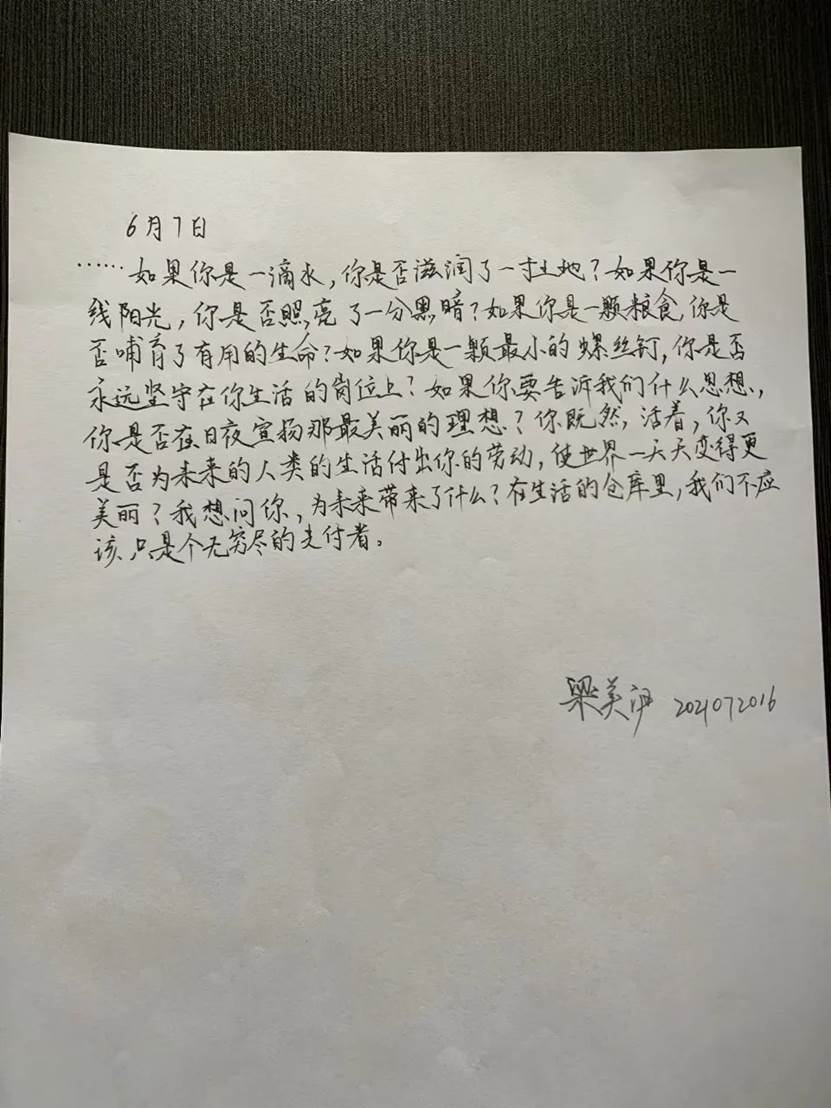 6月7日
……如果你是一滴水,你是否滋润了一寸土地?如果你是一
线阳光,你是否照亮了一分黑暗?如果你是一颗粮食,你是
否哺育了有用的生命?如果你是一颗最小的螺丝钉,你是否
永远坚守在你生活的岗位上?如果你要告诉我们什么思想,
你是否在日夜宣扬那最美丽的理想?你既然,活着,你又
是否为未来的人类的生活付出你的劳动,使世界一天天变得更
美丽?我想问你,为未来带来了什么?在生活的仓库里,我们不应
该只是个无穷尽的支付者。
梁美 2021072016